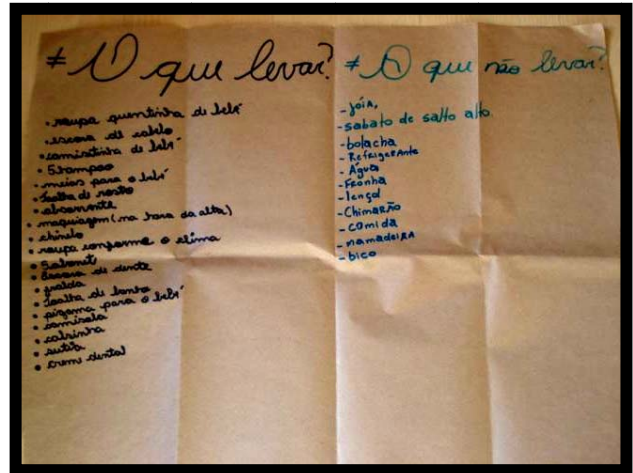 # O que levar?
• roupa quentinha de bebê
• escova de cabelo
• camisetinha de bebê
• Shampoo
• meias para o bebê
• toalha de rosto
• absorvente
• maquiagem (na hora da alta)
• chinelo
• roupa conforme o clima
• Sabonete
• Escova de dente
• fralda
• toalha de banho
• pijama para o bebê
• camisola
• calcinha
• sutiã
• crem dental
≠ O que não levar?
- jóia,
- sabato de salto alto.
- bolacha
- Refrigerante
- Água
- Fronha
- lençol
- Chimarão
- comida
- mamadeira
- bico